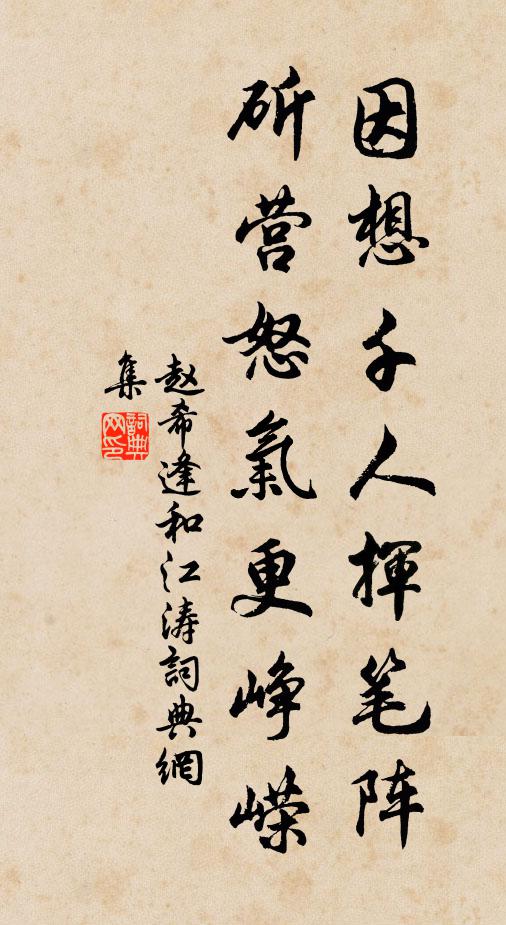 因想千人揮笔阵
斫营怒氣更峥嵘
赵希逢和江涛詞典網
集
詞典
网印